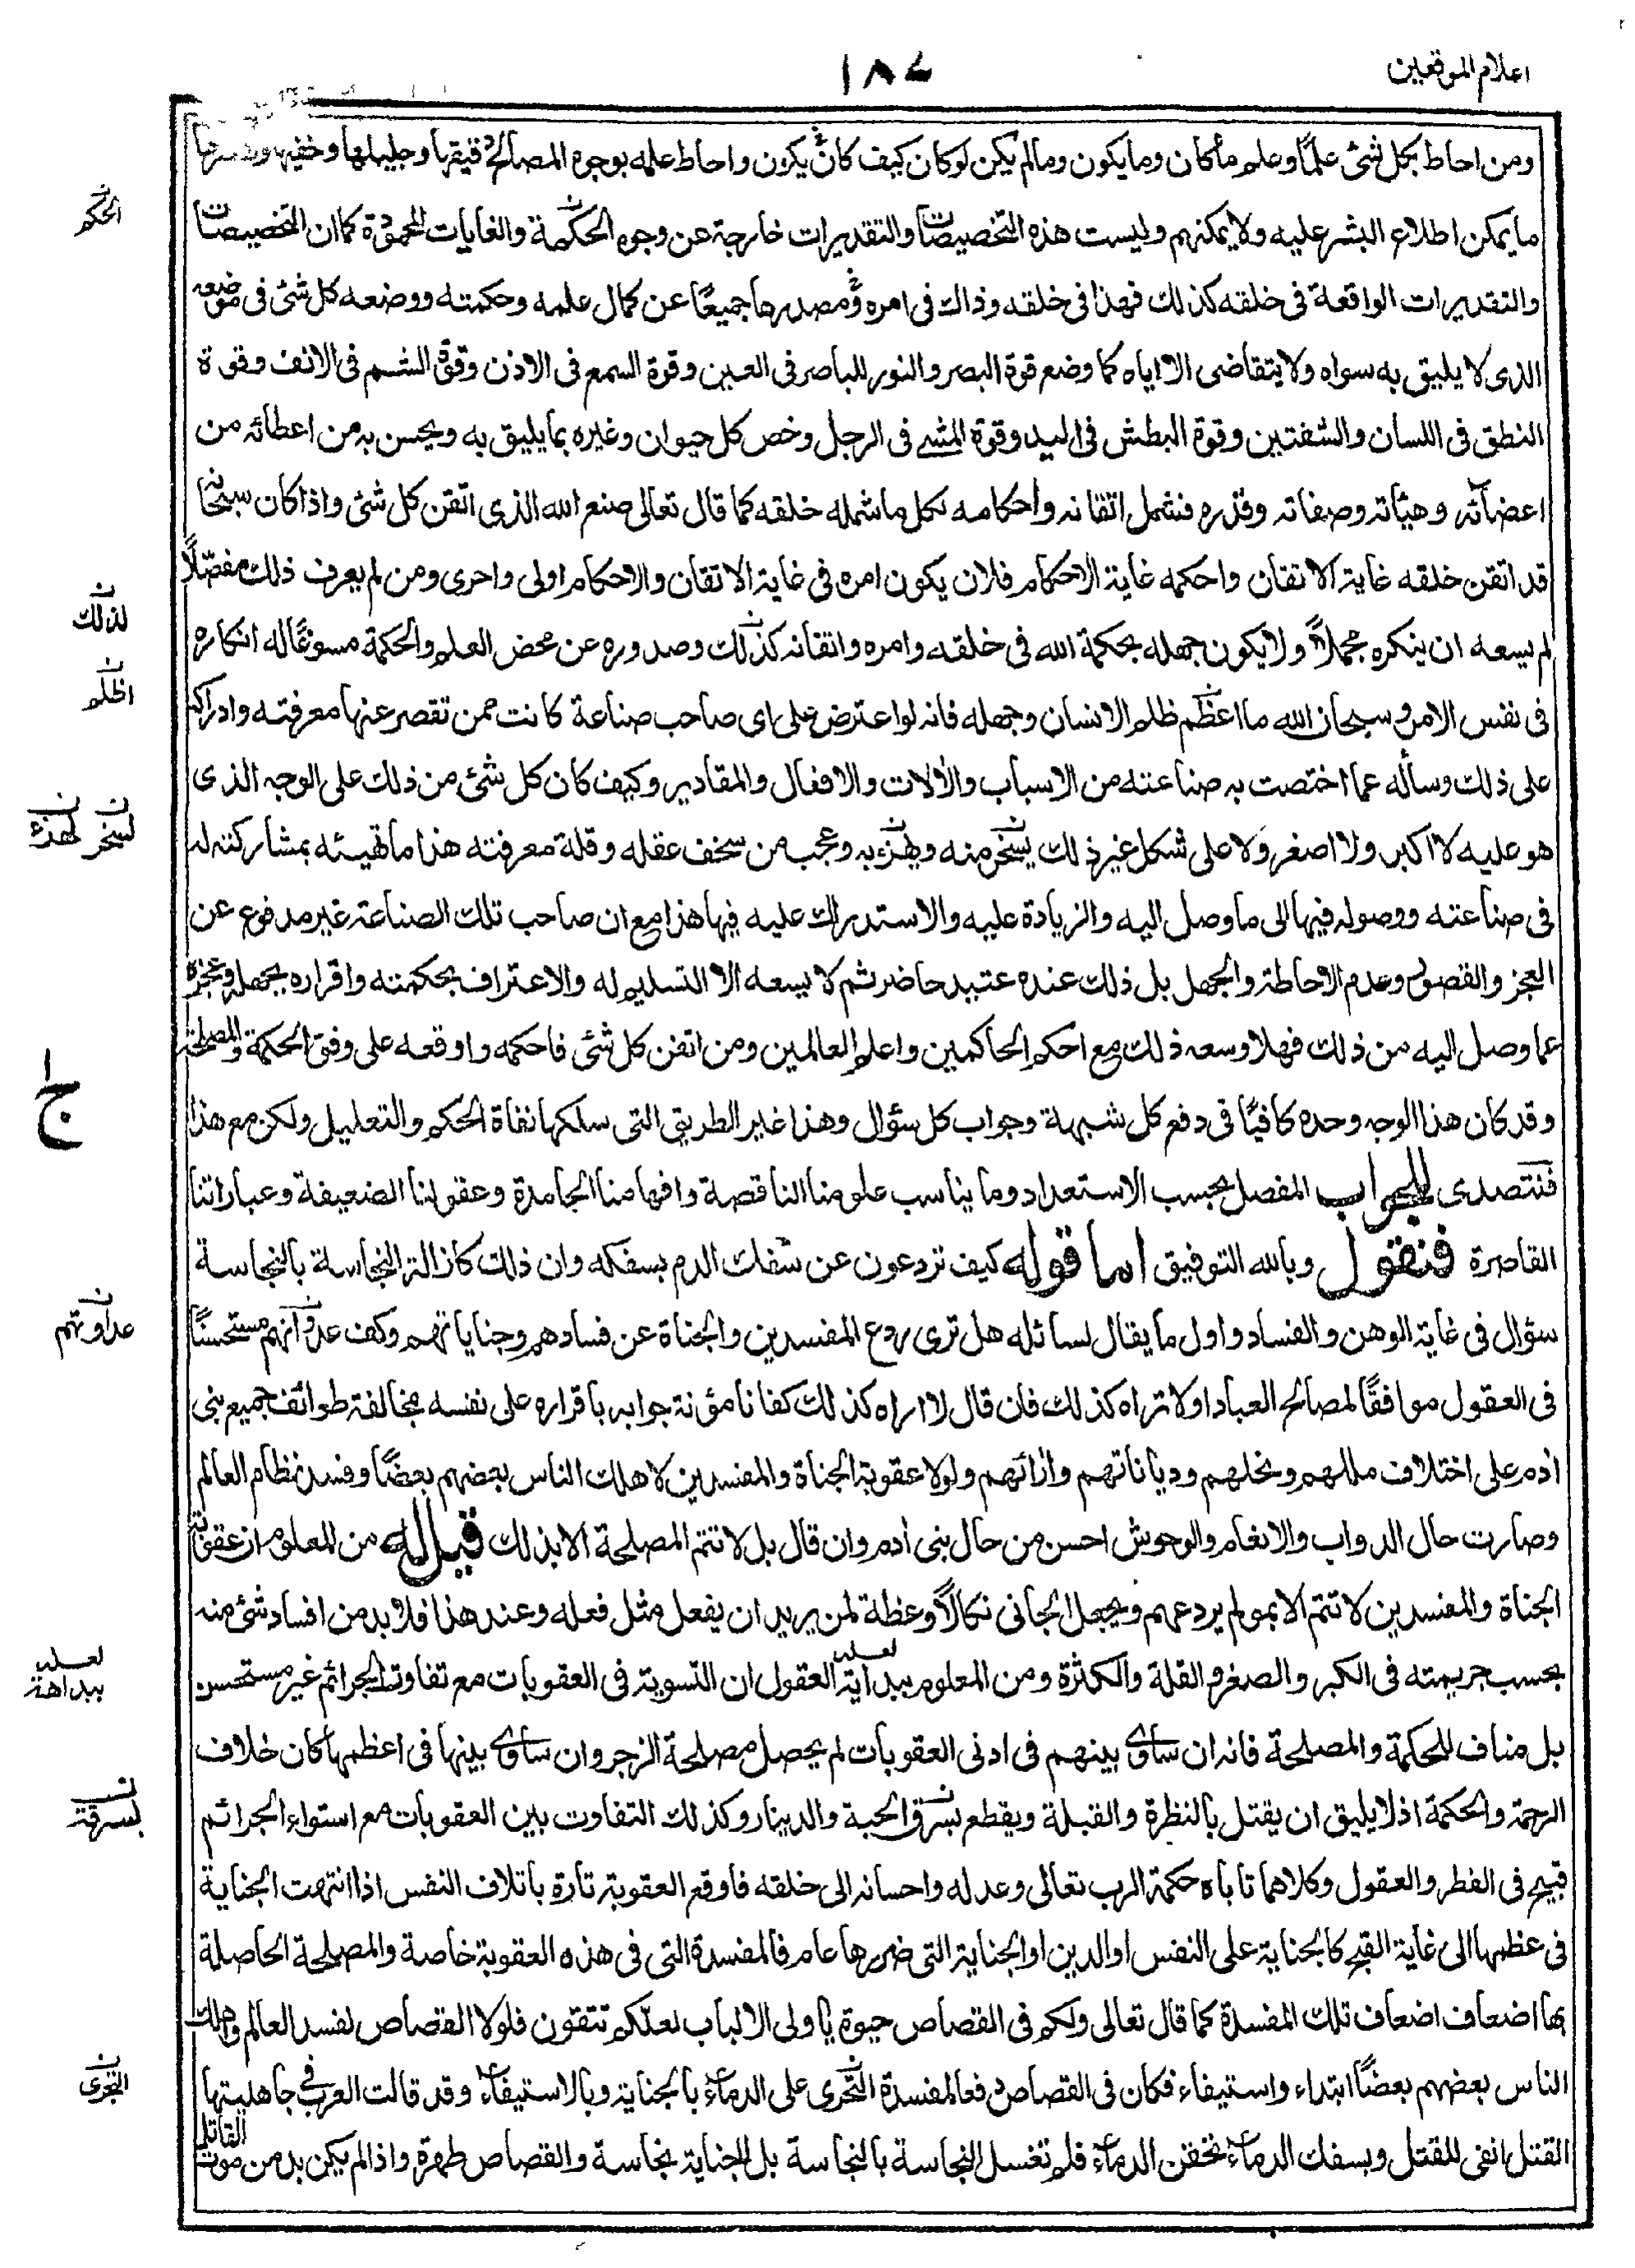 اعلام الموقعين
١٨٧
ومن احاط بكل شئ علمًا وعلم ما كان وما يكون وما لم يكن لو كان كيف كان يكون واحاط علمه بوجوه المصالح دقيقها وجليلها وخفيها
ما يمكن اطلاع البشر عليه ولا يمكنهم وليست هذه التخصيصات والتقديرات خارجة عن وجوه الحكمة والغايات المحمودة كما ان التخصيصات
الحكم
والتقديرات الواقعة فى خلقه كذلك فهذا فى خلقه وذاك فى امره ومصدرها جميعًا عن كمال علمه وحكمته ووضعه كل شئ فى موضعه
الذى لا يليق به سواه ولا يتقاضى الا اياه كما وضع قوة البصر والنور للباصر فى العين وقوة السمع فى الاذن وقوة الشم فى الانف وقوة
النطق فى اللسان والشفتين وقوة البطش فى اليد وقوة المشى فى الرجل وخص كل حيوان وغيره بما يليق به ويحسن به من اعطائه من
اعضائه وهيأته وصفاته وقدره فشمل اتقانه واحكامه لكل ما شمله خلقه كما قال تعالى صنع الله الذى اتقن كل شئ واذا كان سبحانه
قد اتقن خلقه غاية الاتقان واحكمه غاية الاحكام فلان يكون امره فى غاية الاتقان والاحكام اولى واحرى ومن لم يعرف ذلك مفصلًا
لذلك
لم يسعه ان ينكره مجملًا ولا يكون جهله بحكمة الله فى خلقه وامره واتقانه كذلك وصدوره عن محض العلم والحكمة مسوغًا له انكاره
اظلم
فى نفس الامر وسبحان الله ما اعظم ظلم الانسان وجهله فانه لو اعترض على اى صاحب صناعة كانت ممن تقصر عنها معرفته وادراكه
على ذلك وسأله عما اختصت به صناعته من الاسباب والآلات والافعال والمقادير وكيف كان كل شئ من ذلك على الوجه الذى
لسخر لهزئ
هو عليه لا اكبر ولا اصغر ولا على شكل غير ذلك يسخر منه ويهزء به وعجب من سخف عقله وقلة معرفته هذا ما تهيئه بمشاركته له
فى صناعته ووصوله فيها الى ما وصل اليه والزيادة عليه والاستدراك عليه فيها هذا مع ان صاحب تلك الصناعة غير مدفوع عن
العجز والقصور وعدم الاحاطة والجهل بل ذلك عنده عتيد حاضر ثم لا يسعه الا التسليم له والاعتراف بحكمته واقراره بجهله وعجزه
عما وصل اليه من ذلك فهلا وسعه ذلك مع احكم الحاكمين واعلم العالمين ومن اتقن كل شئ فاحكمه واوقعه على وفق الحكمة والمصلحة
ج ا
وقد كان هذا الوجه وحده كافيًا فى دفع كل شبهة وجواب كل سؤال وهذا غير الطريق التى سلكها نفاة الحكم والتعليل ولكن مع هذا
فنتصدى للجواب المفصل بحسب الاستعداد وما يناسب علومنا الناقصة وافهامنا الجامدة وعقولنا الضعيفة وعباراتنا
القاصرة فنقول وبالله التوفيق اما قوله كيف تردعون عن سفك الدم بسفكه وان ذلك كازالة النجاسة بالنجاسة
سؤال فى غاية الوهن والفساد واول ما يقال لسائله هل ترى ردع المفسدين والجناة عن فسادهم وجناياتهم وكف عدوانهم مستحسنًا
عداوتهم
فى العقول موافقًا لمصالح العباد او لا تراه كذلك فان قال لا اراه كذلك كفانا مؤنة جوابه باقراره على نفسه بمخالفة طوائف جميع بنى
اٰدم على اختلاف مللهم ونحلهم ودياناتهم وآرائهم ولولا عقوبة الجناة والمفسدين لاهلك الناس بعضهم بعضًا وفسد نظام العالم
وصارت حال الدواب والانعام والوحوش احسن من حال بنى اٰدم وان قال بل لا تتم المصلحة الا بذلك قيل له من المعلوم ان عقوبة
الجناة والمفسدين لا تتم الا بمولم يردعهم ويجعل الجانى نكالًا وعظة لمن يريد ان يفعل مثل فعله وعند هذا فلا بد من افساد شئ منه
بحسب جريمته فى الكبر والصغر والقلة والكثرة ومن المعلوم ببداية العقول ان التسوية فى العقوبات مع تفاوت الجرائم غير مستحسن
لعله
لعله ببداهة
بل مناف للحكمة والمصلحة فانه ان ساوى بينهم فى ادنى العقوبات لم يحصل مصلحة الزجر وان ساوى بينها فى اعظمها كان خلاف
الرحمة والحكمة اذ لا يليق ان يقتل بالنظرة والقبلة ويقطع بسرق الحبة والدينار وكذلك التفاوت بين العقوبات مع استواء الجرائم
بسرقة
قبيح فى الفطر والعقول وكلاهما تاباه حكمة الرب تعالى وعدله واحسانه الى خلقه فاوقع العقوبة تارة باتلاف النفس اذا انتهت الجناية
فى عظمها الى غاية القبح كالجناية على النفس او الدين او الجناية التى ضررها عام فالمفسدة التى فى هذه العقوبة خاصة والمصلحة الحاصلة
بها اضعاف اضعاف تلك المفسدة كما قال تعالى ولكم فى القصاص حيوة يا ولى الالباب لعلكم تتقون فلولا القصاص لفسد العالم واهلك
الناس بعضهم بعضًا ابتداء واستيفاء فكان فى القصاص دفعا لمفسدة التجرى على الدماء بالجناية وبالاستيفاء وقد قالت العرب فى جاهليتها
التجرى
القتل انفى للقتل وبسفك الدماء تحقن الدماء فلم تغسل النجاسة بالنجاسة بل الجناية نجاسة والقصاص طهرة واذا لم يكن بد من موت القاتل